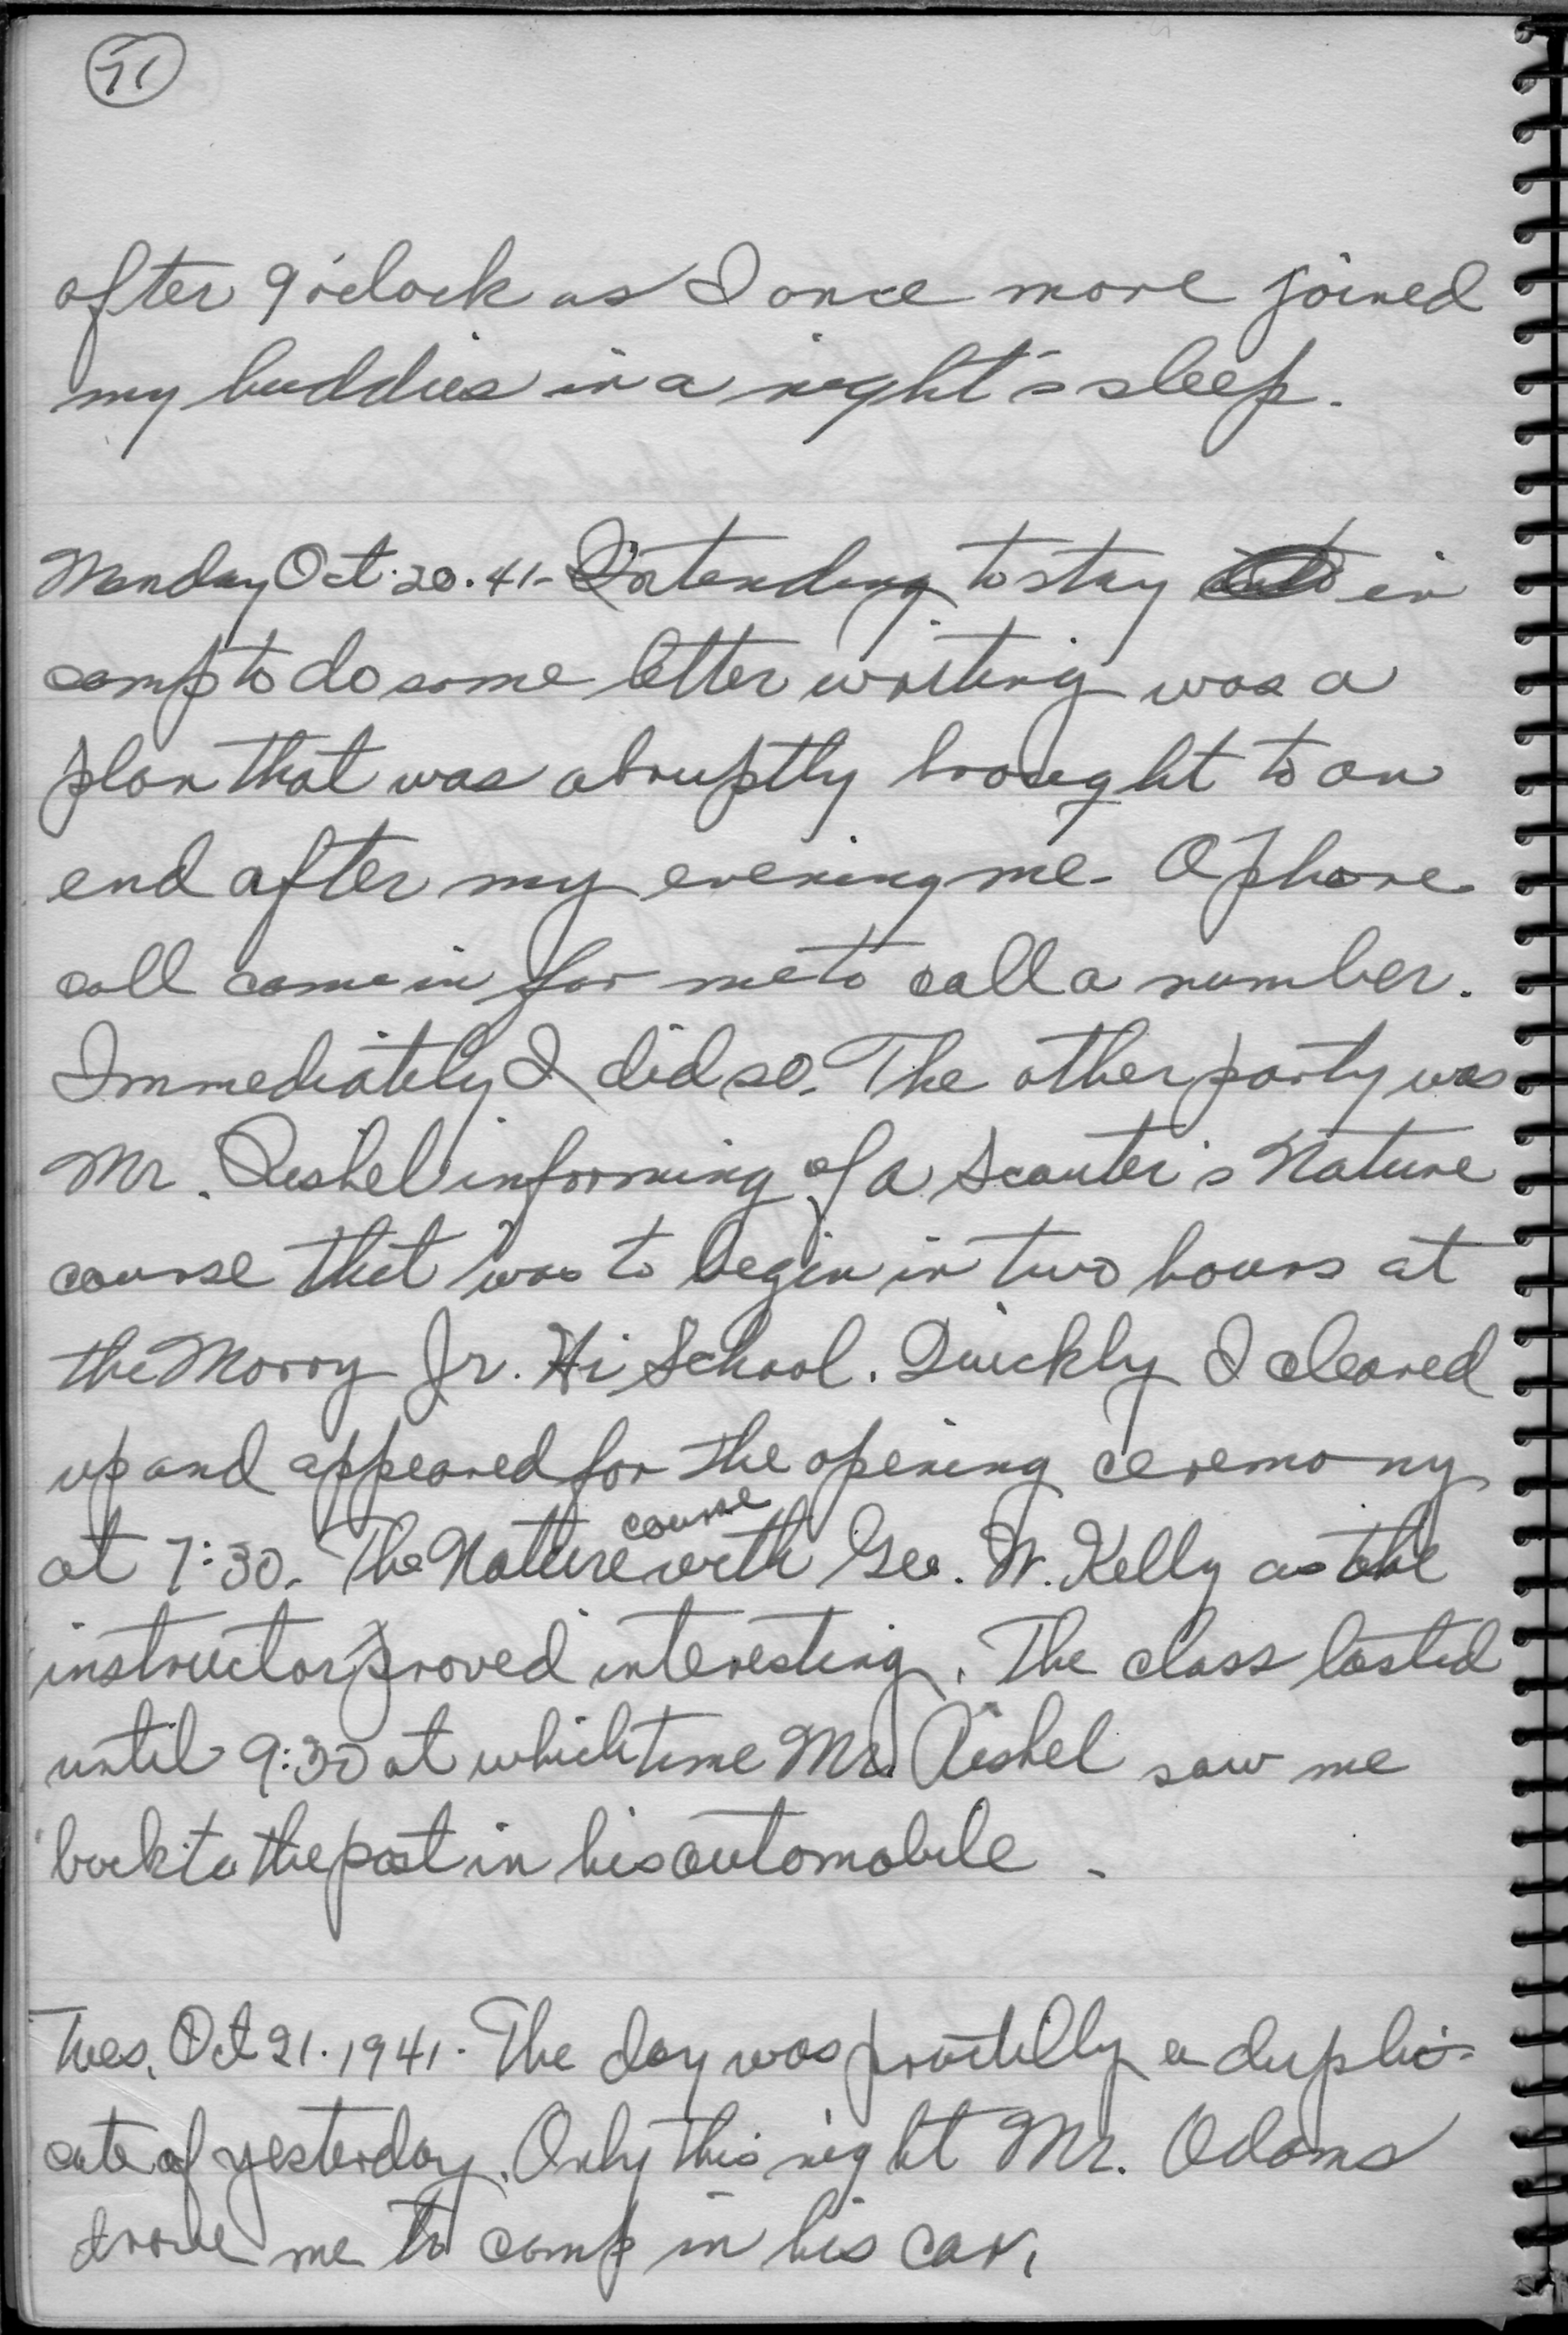 71
after 9 o'clock as I once more joined
my buddies in a night's sleep.
Monday Oct. 20. 41 - Intending to stay in
camp to do some letter writing was a
plan that was abruptly brought to an
end after my evening me. A phone
call came in for me to call a number.
Immediately I did so. The other party was
Mr. Rishel informing of a Scouter's Nature
course that was to begin in two hours at
the Morry Jr. Hi School. Quickly I cleaned
up and appeared for the opening ceremony
at 7:30. The Nature course with Geo. W. Kelly as the
instructor proved interesting. The class lasted
until 9:30 at which time Mr. Rishel saw me
back to the post in his automobile.
Tues. Oct 21. 1941. The day was a duplic-
cate of yesterday. Only this night Mr. Adams
drove me to camp in his car.